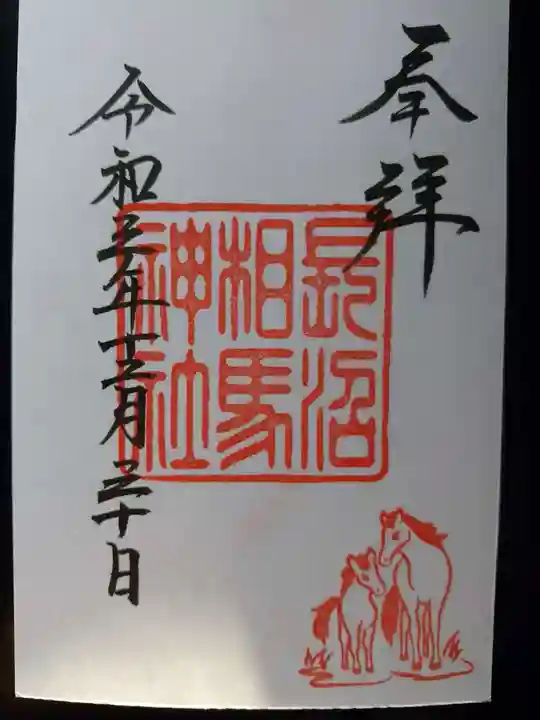 奉拝
長沼
相馬
神社
令和五年十二月三十日